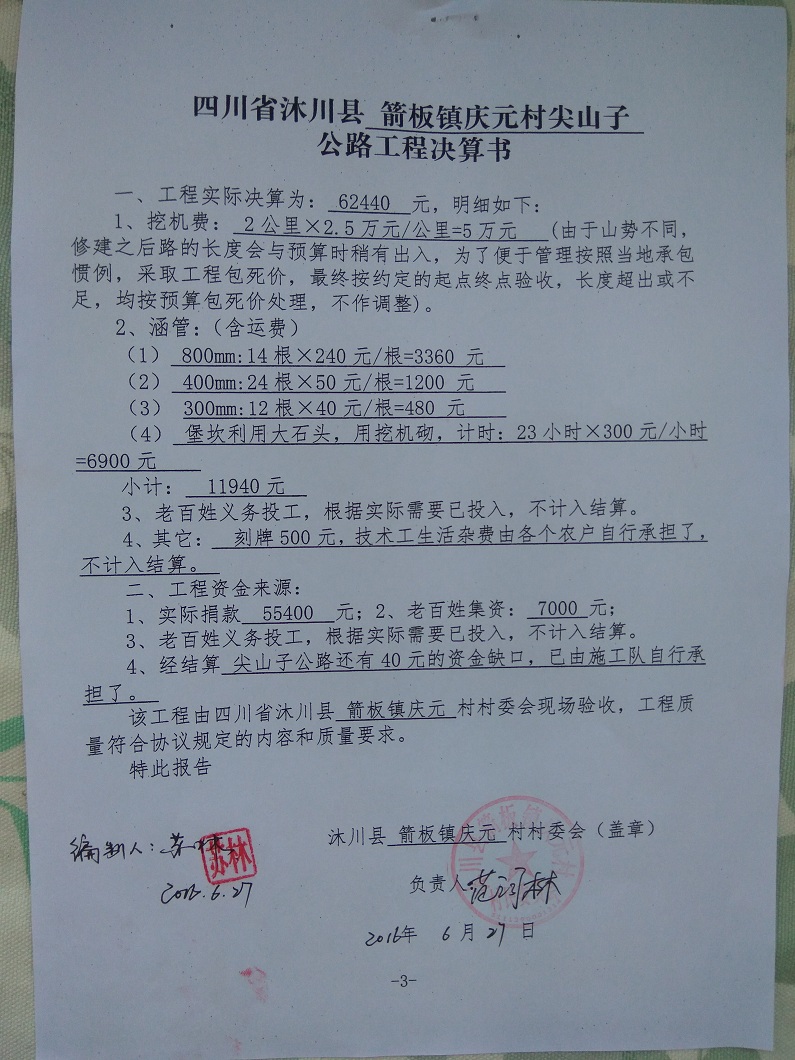 四川省沐川县 箭板镇庆元村尖山子
公路工程决算书
一、工程实际决算为: 62440 元，明细如下:
1、挖机费: 2公里×2.5万元/公里=5万元 (由于山势不同，
修建之后路的长度会与预算时稍有出入，为了便于管理按照当地承包
惯例，采取工程包死价，最终按约定的起点终点验收，长度超出或不
足，均按预算包死价处理，不作调整)。
2、涵管:(含运费)
(1) 800mm:14根×240元/根=3360 元
(2) 400mm:24根×50元/根=1200 元
(3) 300mm:12根×40元/根=480 元
(4) 堡坎利用大石头，用挖机砌，计时: 23小时×300元/小时
=6900元
小计: 11940元
3、老百姓义务投工，根据实际需要已投入，不计入结算。
4、其它: 刻牌500元，技术工生活杂费由各个农户自行承担了，
不计入结算。
二、工程资金来源:
1、实际捐款 55400 元；2、老百姓集资: 7000 元；
3、老百姓义务投工，根据实际需要已投入，不计入结算。
4、经结算 尖山子公路还有40元的资金缺口，已由施工队自行承
担了。
该工程由四川省沐川县 箭板镇庆元 村村委会现场验收，工程质
量符合协议规定的内容和质量要求。
特此报告
沐川县 箭板镇庆元 村村委会（盖章）
编制人: 苏林
苏林
2016.6.27
负责人
2016年 6月27日
-3-